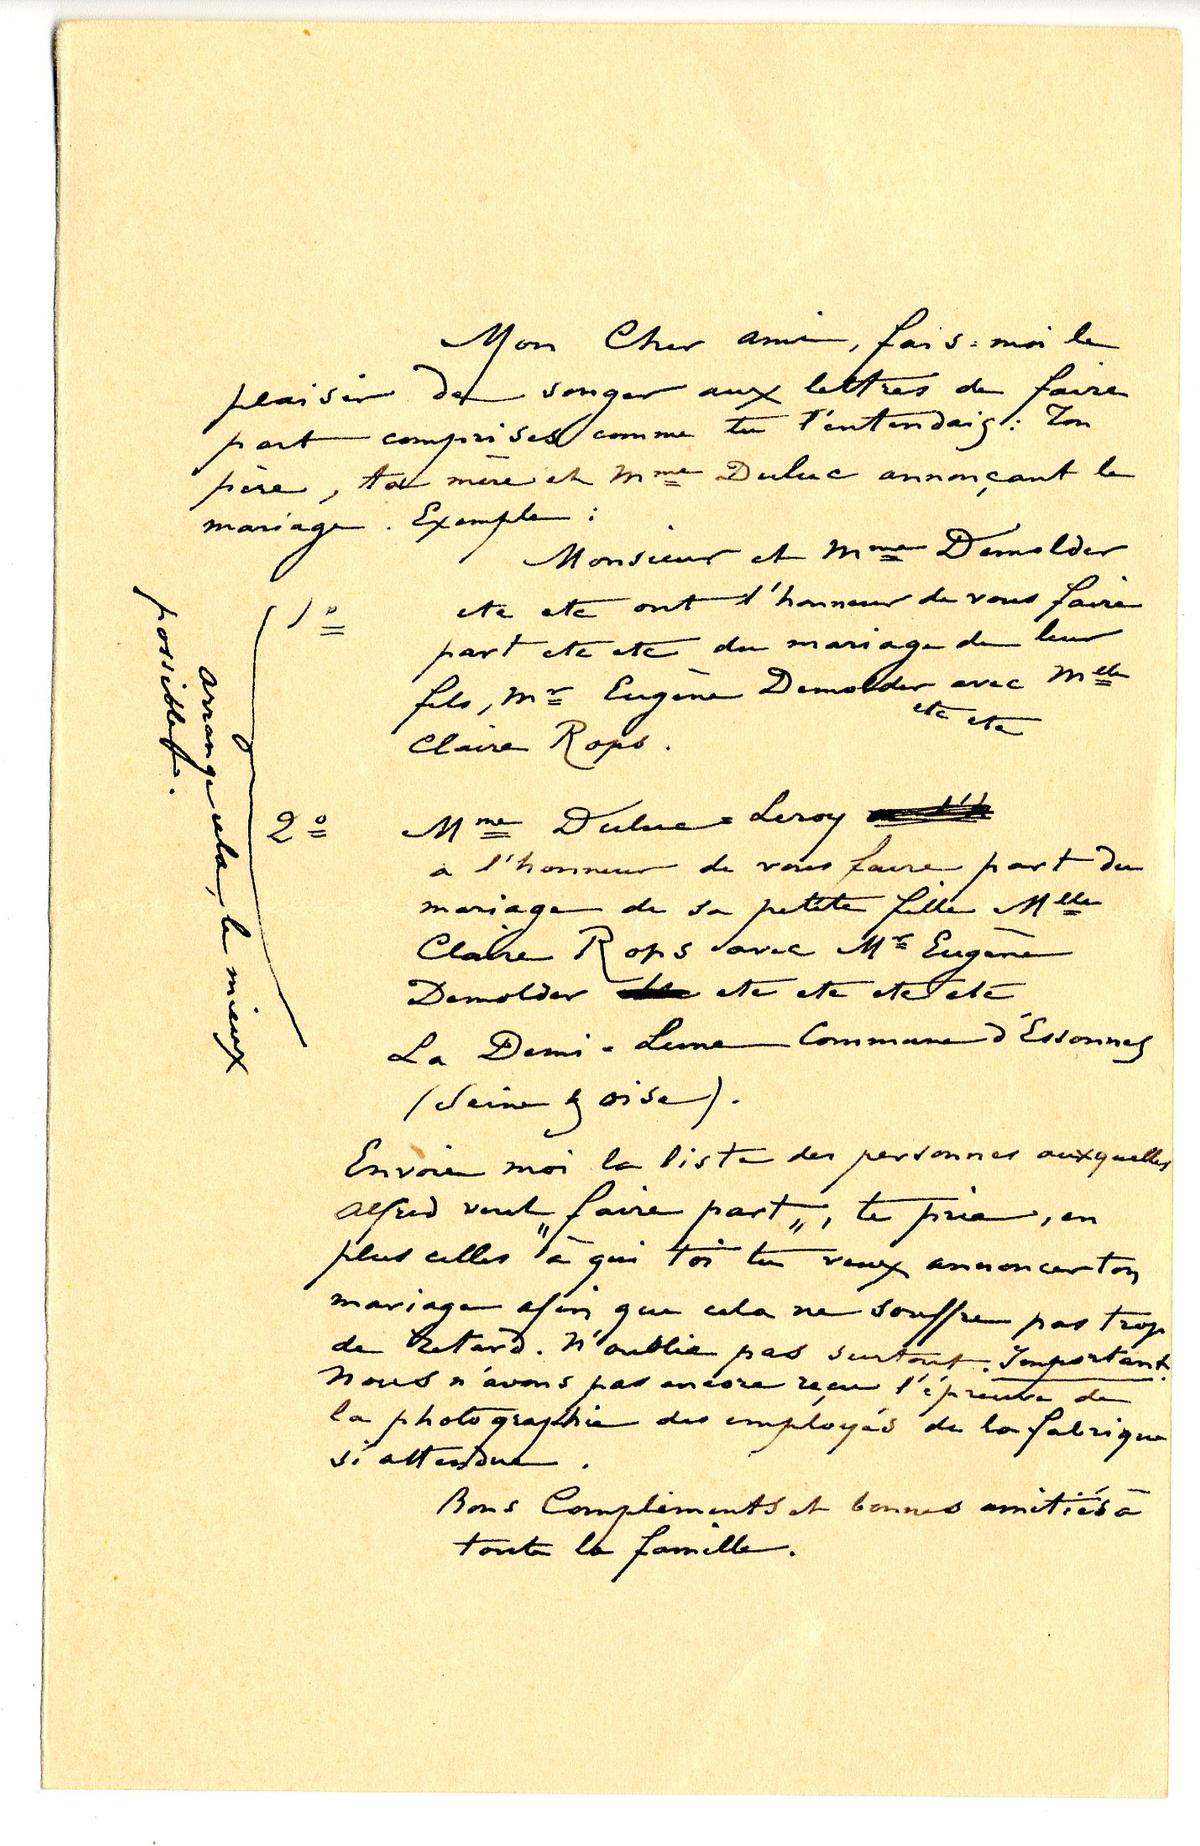 Mon Cher ami, fais-moi le
plaisir de songer aux lettres de faire
part comprises comme tu l'entendais : Ton
père, ta mère et Mme Duluc annonçant le
mariage. Exemple :
1o Monsieur et Mme Demolder
etc etc ont l'honneur de vous faire
part etc etc du mariage de leur
fils, Mr Eugène Demolder avec Mlle
Claire Rops. etc etc
2o Mme Duluc-Leroy
a l'honneur de vous faire part du
mariage de sa petite fille Mlle
Claire Rops avec Mr Eugène
Demolder etc etc etc etc
La Demi-Lune Commune d'Essonnes
(Seine & Oise).
arrange cela, le mieux
possible.
Envoie moi la liste des personnes auxquelles
Alfred veut "faire part", te prie, en
plus celles à qui toi tu veux annoncer ton
mariage afin que cela ne souffre pas trop
de retard. N'oublie pas surtout. Important.
Nous n'avons pas encore reçu l'épreuve de
la photographie des employés de la fabrique
si attendue.
Bons Compliments et bonnes amitiés à
toute la famille.